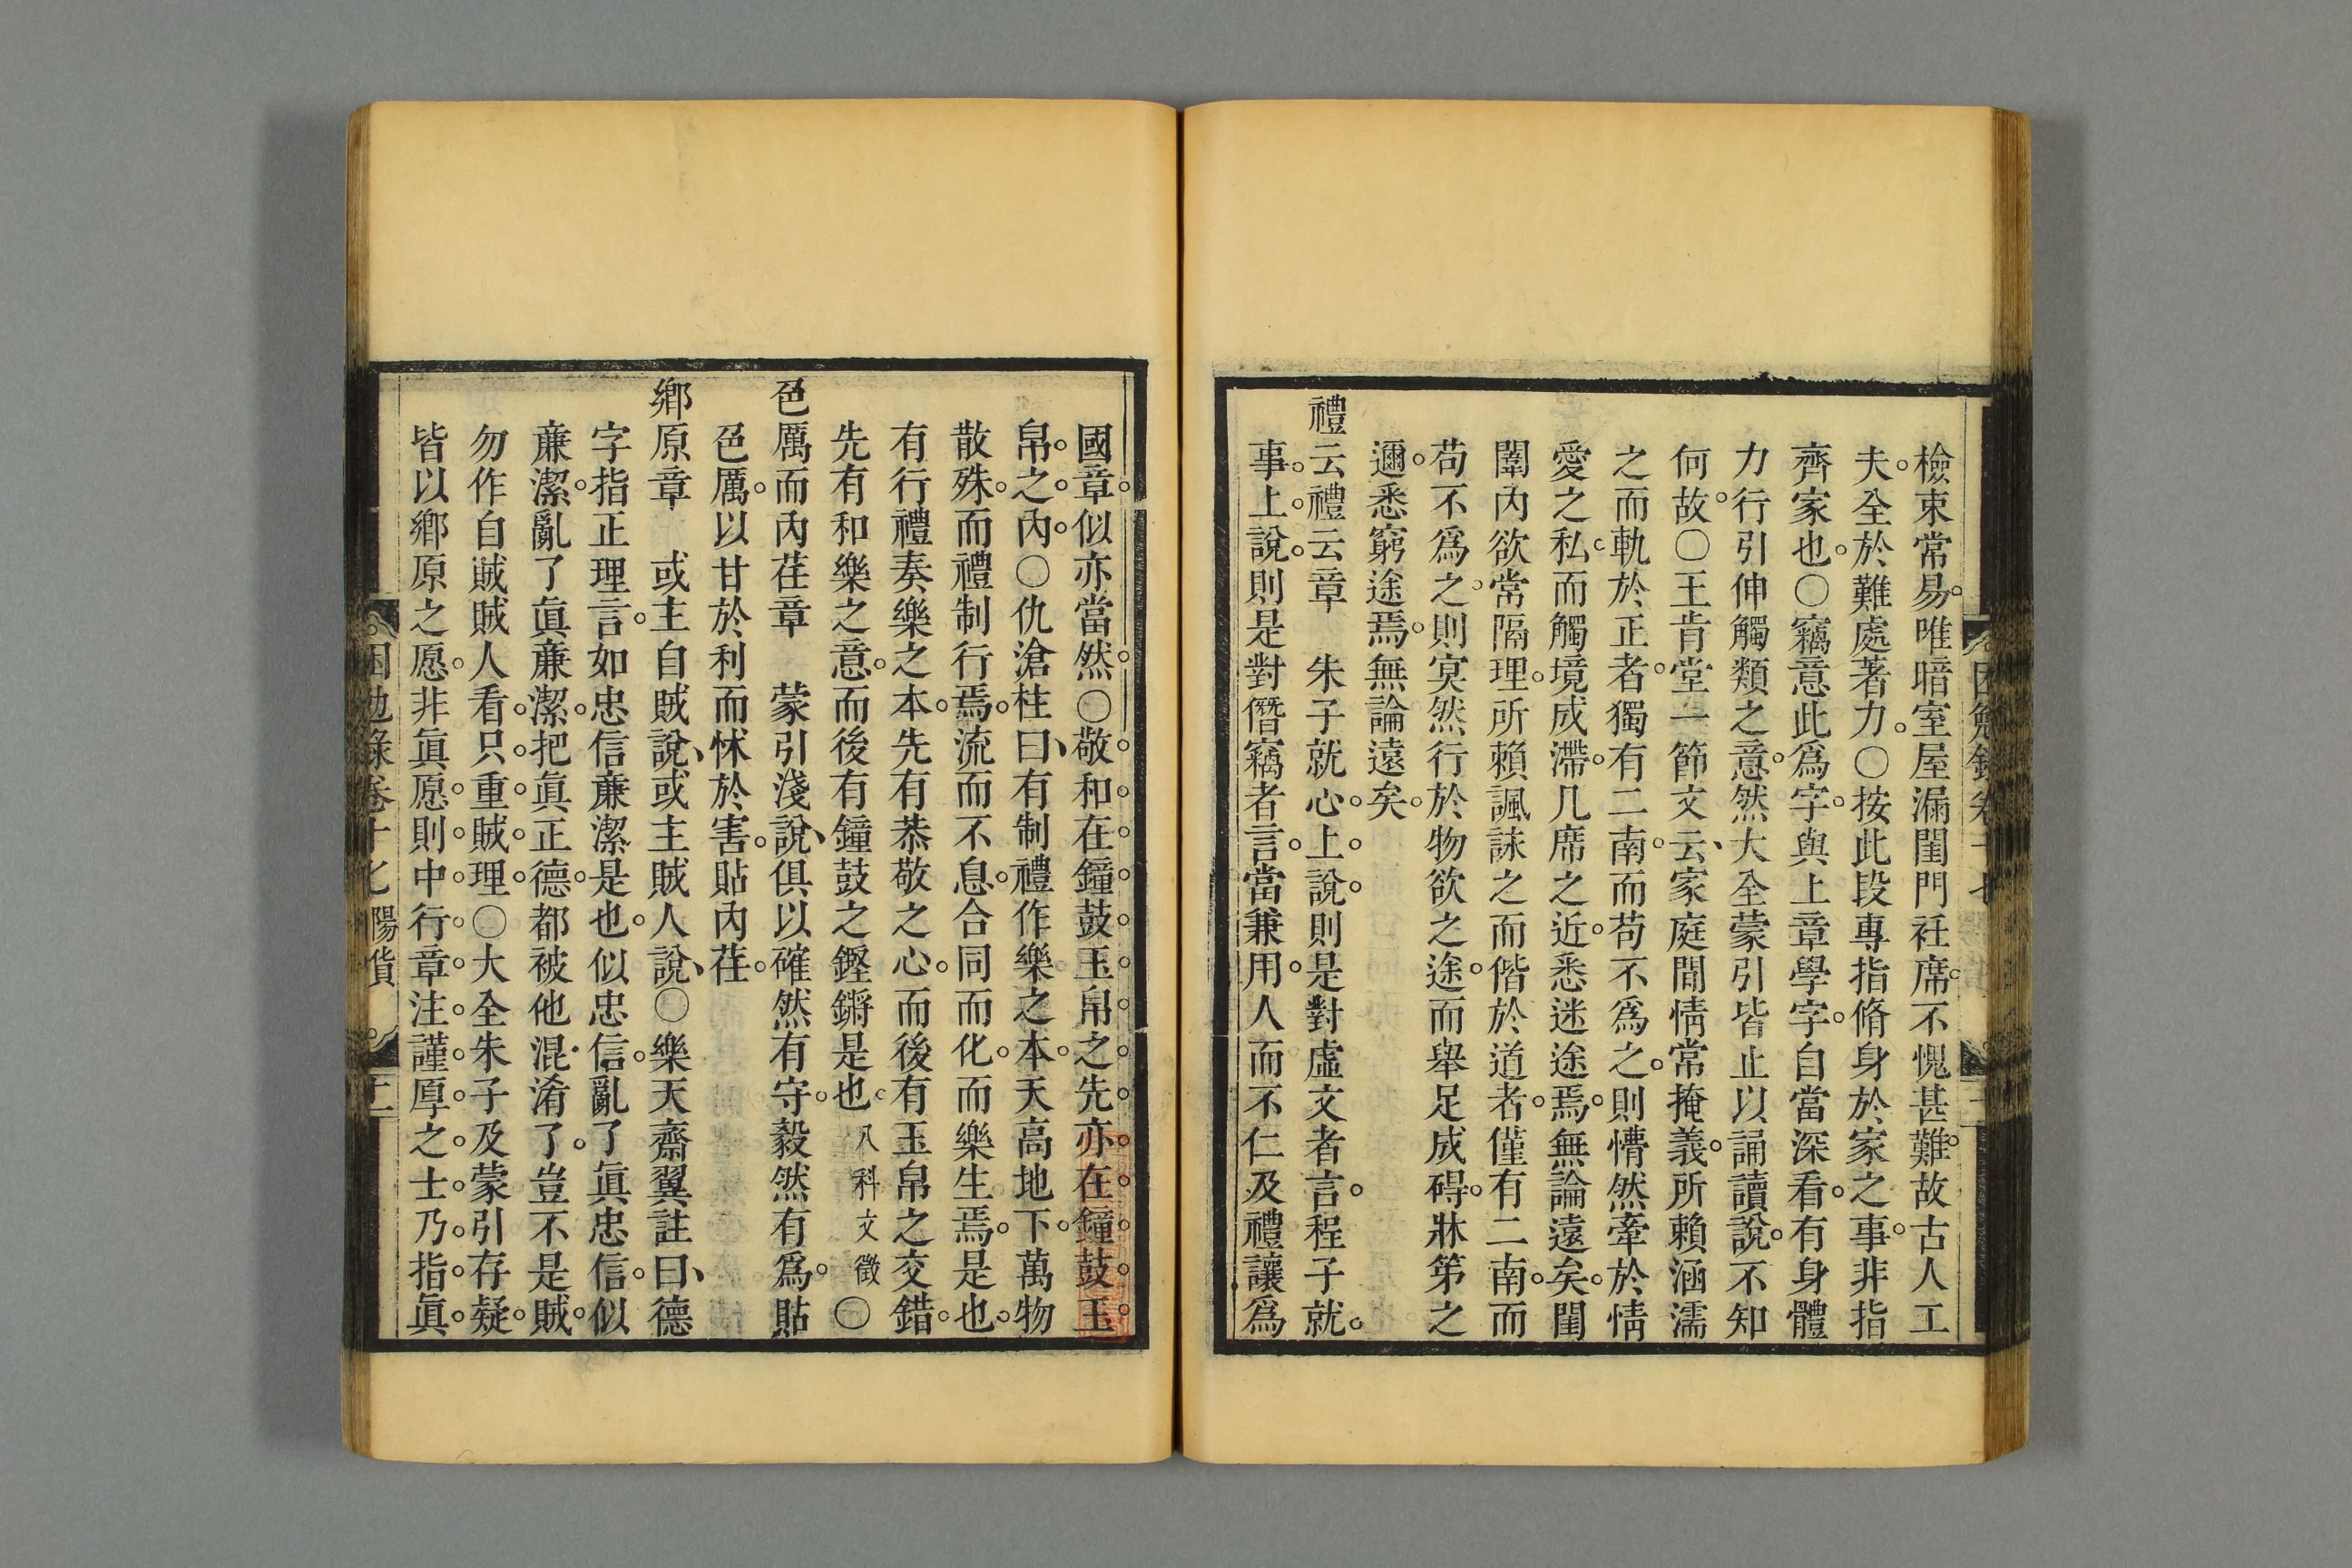 檢束常易唯暗室屋漏閨門袵席不愧甚難故古人工
夫全於難處著力〇按此段專指脩身於家之事非指
齊家也〇竊意此爲字與上章學字自當深看有身體
力行引伸觸類之意然大全蒙引皆止以誦讀說不知
何故〇王肯堂一節文云家庭間情常掩義所賴涵濡
之而軌於正者獨有二南而苟不爲之則懵然牽於情
愛之私而觸境成滯几席之近悉迷途焉無論遠矣閨
闈內欲常隔理所賴諷詠之而偕於道者僅有二南而
苟不爲之則冥然行於物欲之途而舉足成碍牀笫之
邇悉窮途焉無論遠矣
禮云禮云章 朱子就心上說則是對虛文者言程子就
事上說則是對僭竊者言當兼用人而不仁及禮讓爲
國章似亦當然〇敬和在鐘鼓玉帛之先亦在鐘鼓玉
帛之內〇仇滄柱曰有制禮作樂之本天高地下萬物
散殊而禮制行焉流而不息合同而化而樂生焉是也
有行禮奏樂之本先有恭敬之心而後有玉帛之交錯
先有和樂之意而後有鐘鼓之鏗鏘是也八科文徵〇
色厲而內荏章 蒙引淺說俱以確然有守毅然有爲貼
色厲以甘於利而怵於害貼內荏
鄉原章 或主自賊說或主賊人說〇樂天齋翼註曰德
字指正理言如忠信亷潔是也似忠信亂了眞忠信似
亷潔亂了眞亷潔把眞正德都被他混淆了豈不是賊
勿作自賊賊人看只重賊理〇大全朱子及蒙引存疑
皆以鄉原之愿非眞愿則中行章注謹厚之士乃指眞
困勉錄卷十七 陽貨